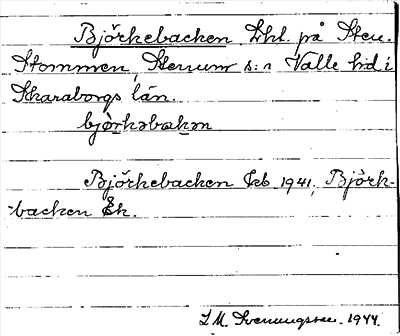 Björkebacken, Lhl. på Sten-
Stommen, Stenum s:n Valle hd i
Skaraborgs län.
bjørkəbakən
Björkebacken Jrb 1941, Björk-
backen Ek.
I.M. Svenungsson. 1944.